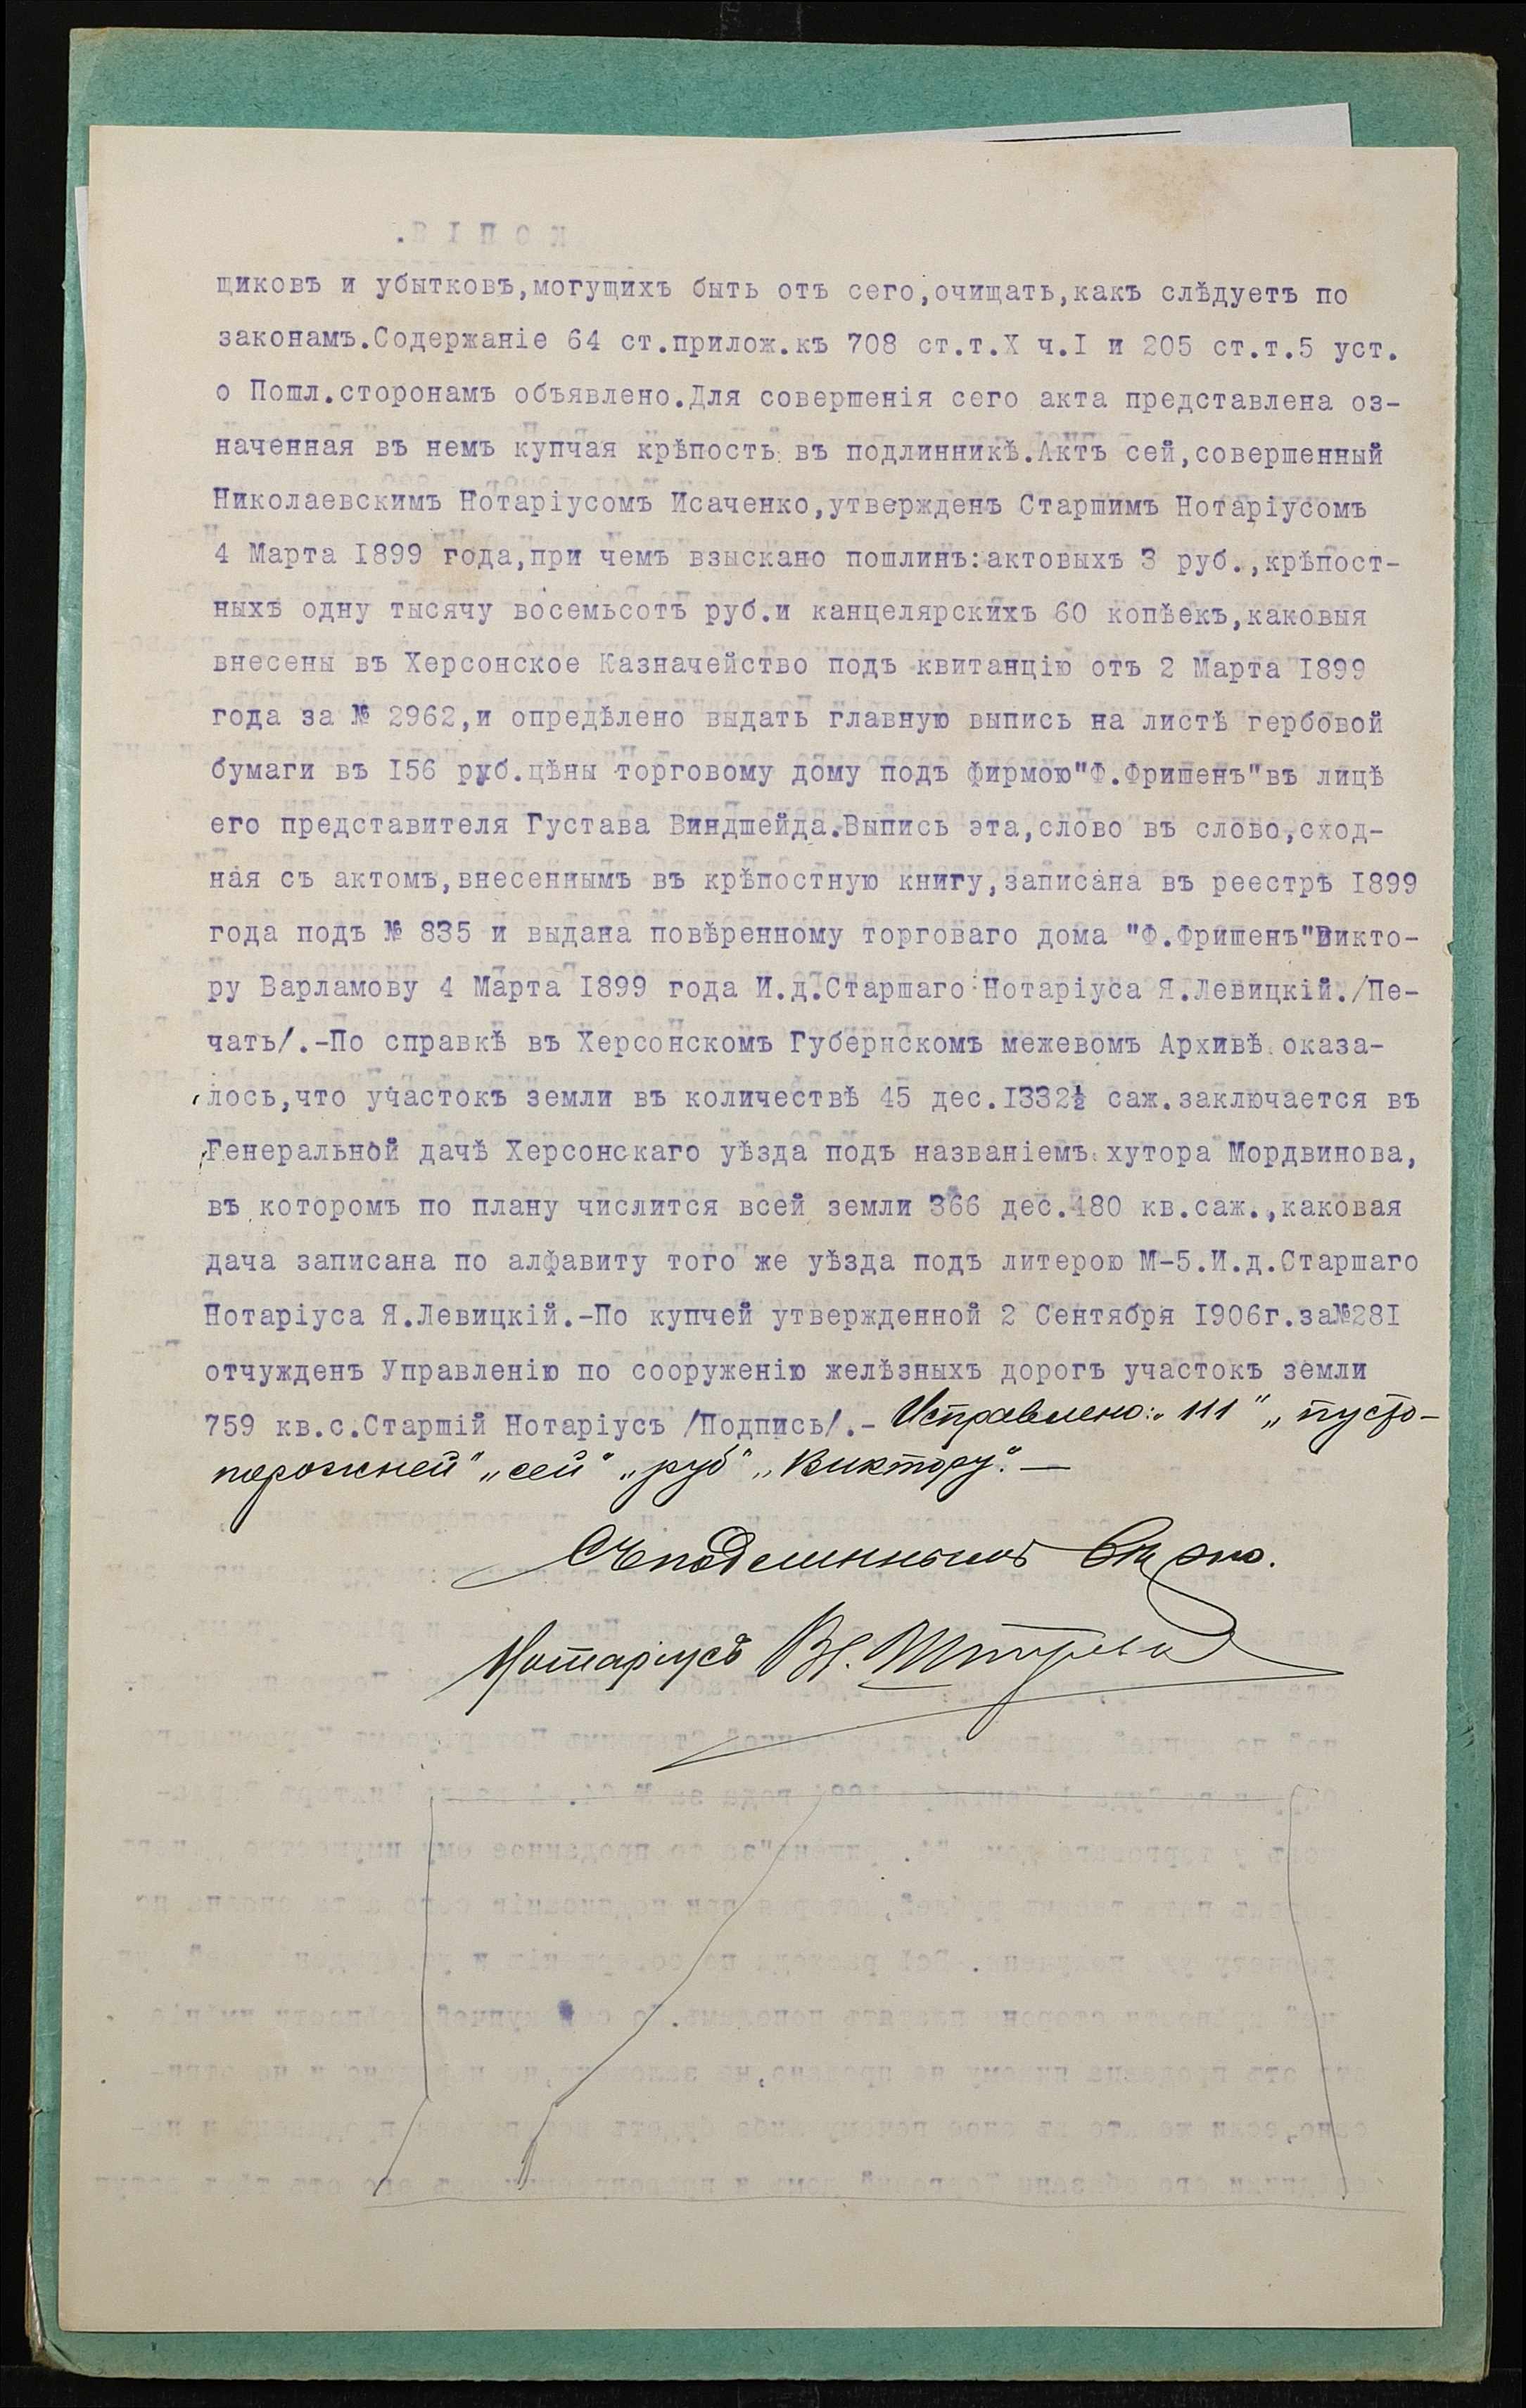 щиковъ и убытковъ,могущихъ быть отъ сего,очищать,какъ слѣдуетъ по
законамъ.Содержаніе 64 ст.прилож.къ 708 ст.т.X ч.I и 205 ст.т.5 уст.
о Пошл.сторонамъ объявлено.Для совершенія сего акта представлена оз-
наченная въ немъ купчая крѣпость въ подлинникѣ.Актъ сей,совершенный
Николаевскимъ Нотаріусомъ Исаченко,утвержденъ Старшимъ Нотаріусомъ
4 Марта I899 года,при чемъ взыскано пошлинъ:актовыхъ 3 руб.,крѣпост-
ныхъ одну тысячу восемьсотъ руб.и канцелярскихъ 60 копѣекъ,каковыя
внесены въ Херсонское Казначейство подъ квитанцію отъ 2 Марта I899
года за № 2962,и опредѣлено выдать главную выпись на листѣ гербовой
бумаги въ I56 руб.цѣны торговому дому подъ фирмою"Ф.Фришенъ"въ лицѣ
его представителя Густава Виндшейда.Выпись эта,слово въ слово,сход-
ная съ актомъ,внесеннымъ въ крѣпостную книгу,записана въ реестрѣ I899
года подъ № 835 и выдана повѣренному торговаго дома "Ф.Фришенъ"Викто-
ру Варламову 4 Марта I899 года И.д.Старшаго Нотаріуса Я.Левицкій./Пе-
чать/.-По справкѣ въ Херсонскомъ Губернскомъ межевомъ Архивѣ оказа-
лось,что участокъ земли въ количествѣ 45 дес.I332½ саж.заключается въ
Генеральной дачѣ Херсонскаго уѣзда подъ названіемъ хутора Мордвинова,
въ которомъ по плану числится всей земли 366 дес.480 кв.саж.,каковая
дача записана по алфавиту того же уѣзда подъ литерою М-5.И.д.Старшаго
Нотаріуса Я.Левицкій.-По купчей утвержденной 2 Сентября I906г.за№28I
отчужденъ Управленію по сооруженію желѣзныхъ дорогъ участокъ земли
759 кв.с.Старшій Нотаріусъ /Подпись/.- Исправлено: „111" „пусто-
порожней" „сей" „руб" „Виктору". —
Съ подлиннымъ вѣрно.
Нотаріусъ Вл.